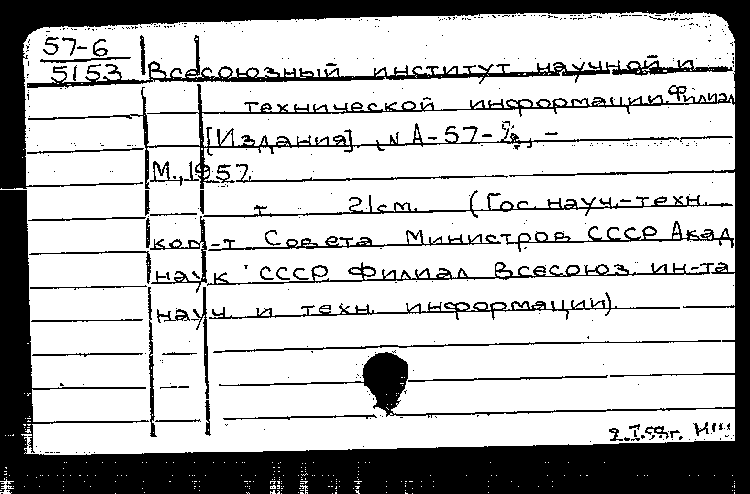 57-6
5153
Всесоюзный институт научной и
технической информации. Филиал
[Издания], N А-57- , -
М., 1957.
т. 21см. (Гос. науч.-техн.
ком-т Совета Министров СССР. Акад.
наук СССР. Филиал Всесоюз. ин-та
науч. и техн. информации).
9.I.58г.